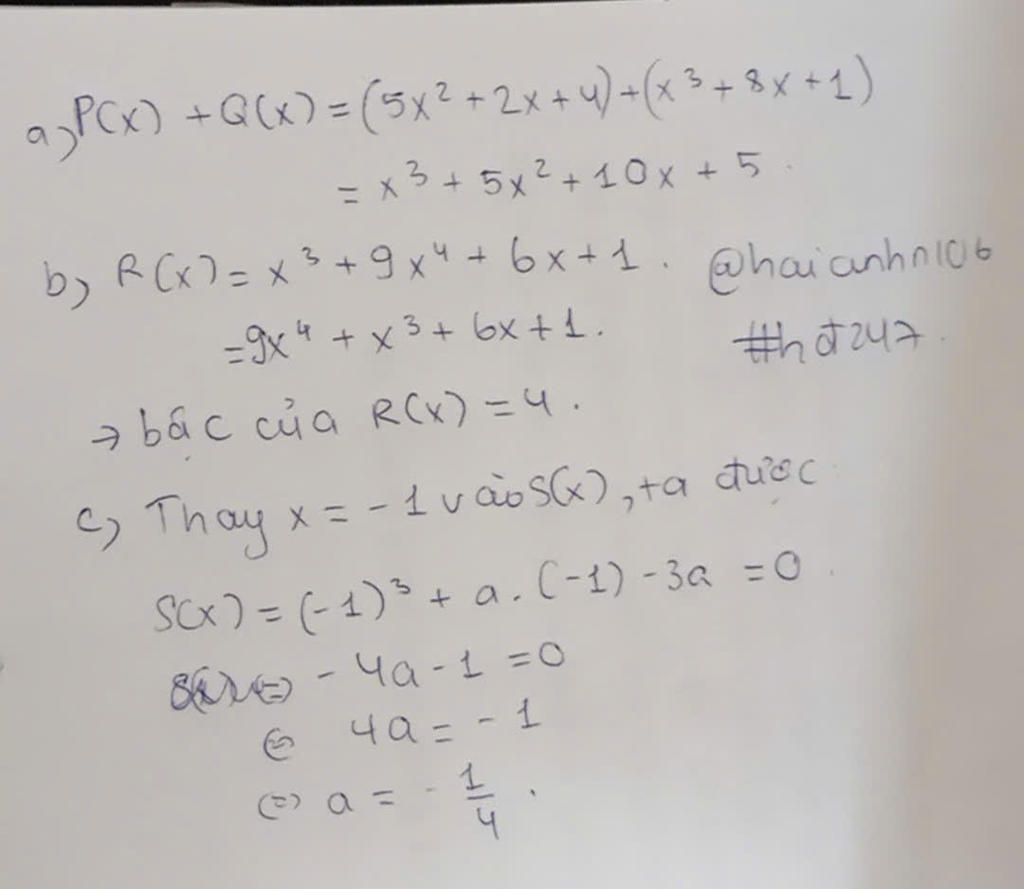 a, P(x) + Q(x) = (5x² + 2x + 4) + (x³ + 8x + 1)
= x³ + 5x² + 10x + 5.
b, R(x) = x³ + 9x⁴ + 6x + 1. @haianhn106
= 9x⁴ + x³ + 6x + 1. #hđ247.
→ bậc của R(x) = 4.
c, Thay x = -1 vào S(x), ta được
S(x) = (-1)³ + a.(-1) - 3a = 0.
⇔ - 4a - 1 = 0
⇔ 4a = - 1
⇔ a = - 1/4.